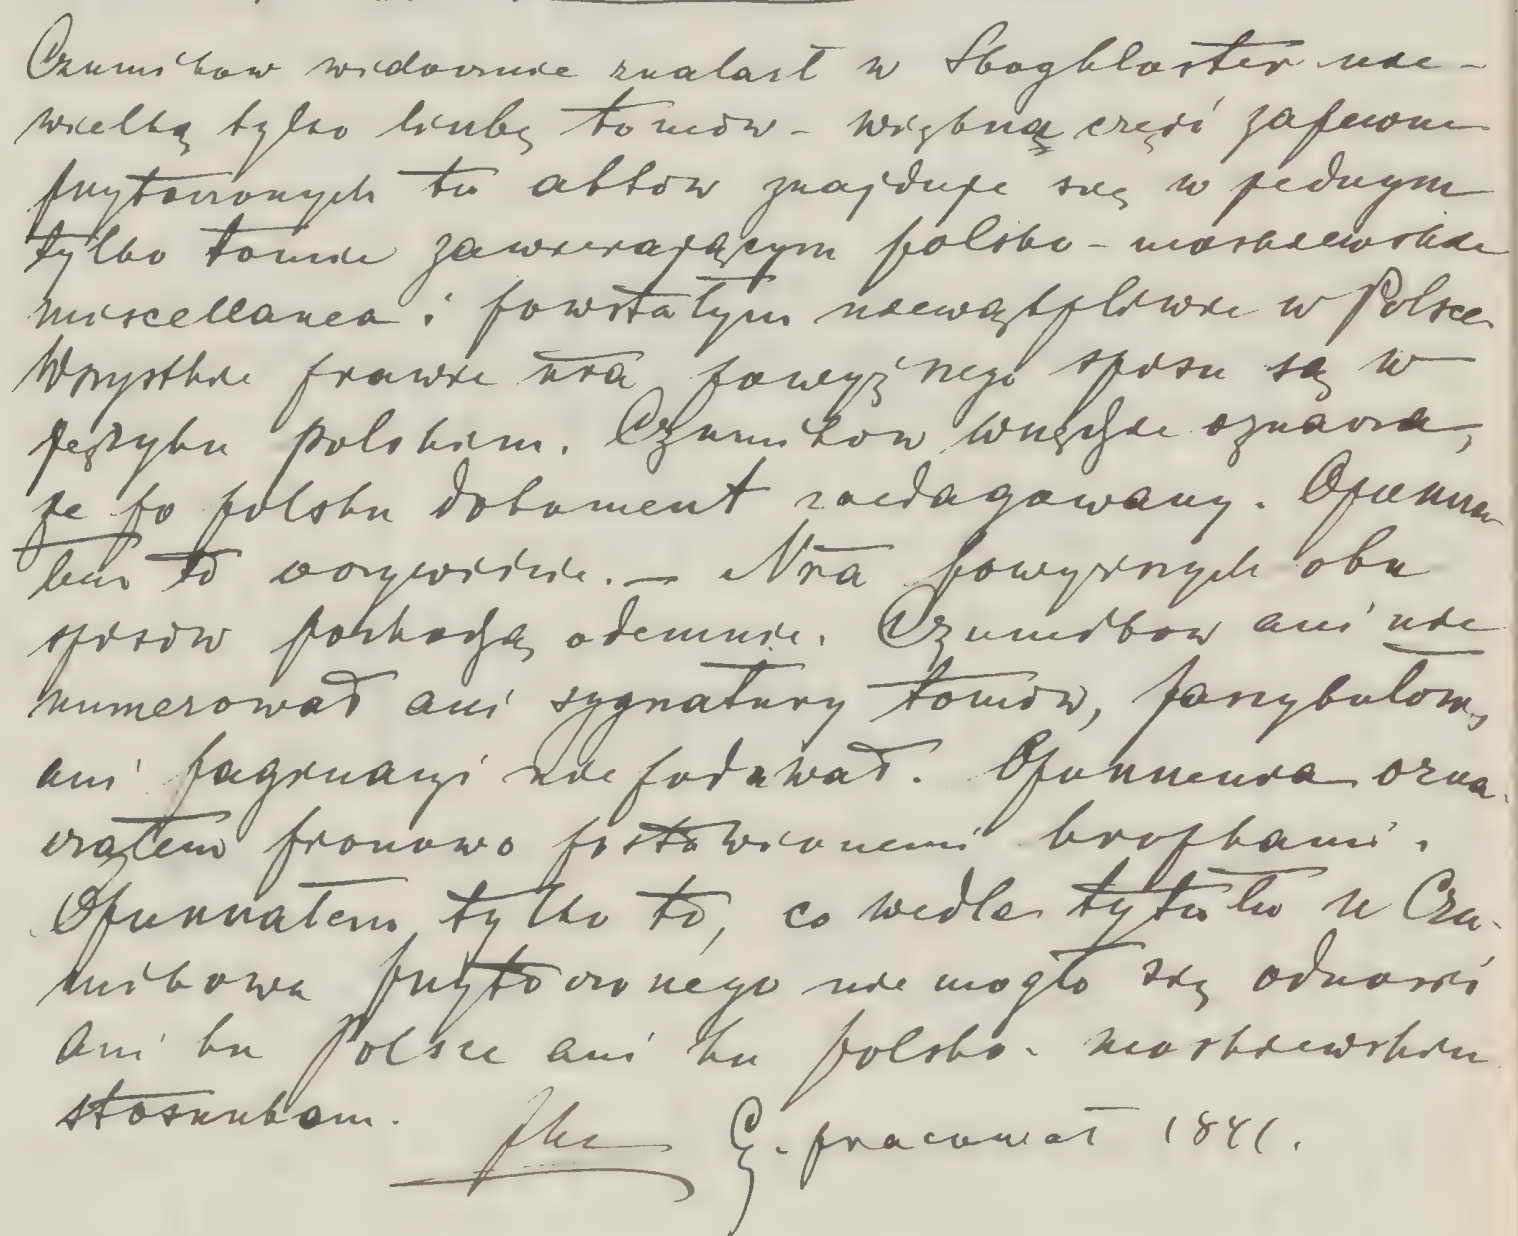 Czumikow widocznie znalazł w Skogkloster nie-
wielką tylko liczbę tomów - większą część zapewne
przytoczonych tu aktów znajduje się w jednym
tylko tomie zawierającym polsko-moskiewskie
miscellanea i powstałym niewątpliwie w Polsce
Wszystkie prawie nra powyższego spisu są w
języku polskim. Czumikow wszędzie oznacza,
że po polsku dokument zredagowany. Opuściłem
to oczywiście. - Nra powyższych obu
spisów pochodzą odemnie. Czumikow ani nie
numerował ani sygnatury tomów, faszykułów,
ani paginacyi nie podawał. Opuszczenia ozna-
czałem pionowo postawionemi kropkami.
Opuszczałem tylko to, co wedle tytułu u Czu-
mikowa przytoczonego nie mogło się odnosić
ani ku Polsce ani ku polsko-moskiewskim
stosunkom.
Cz. pracował 1841.